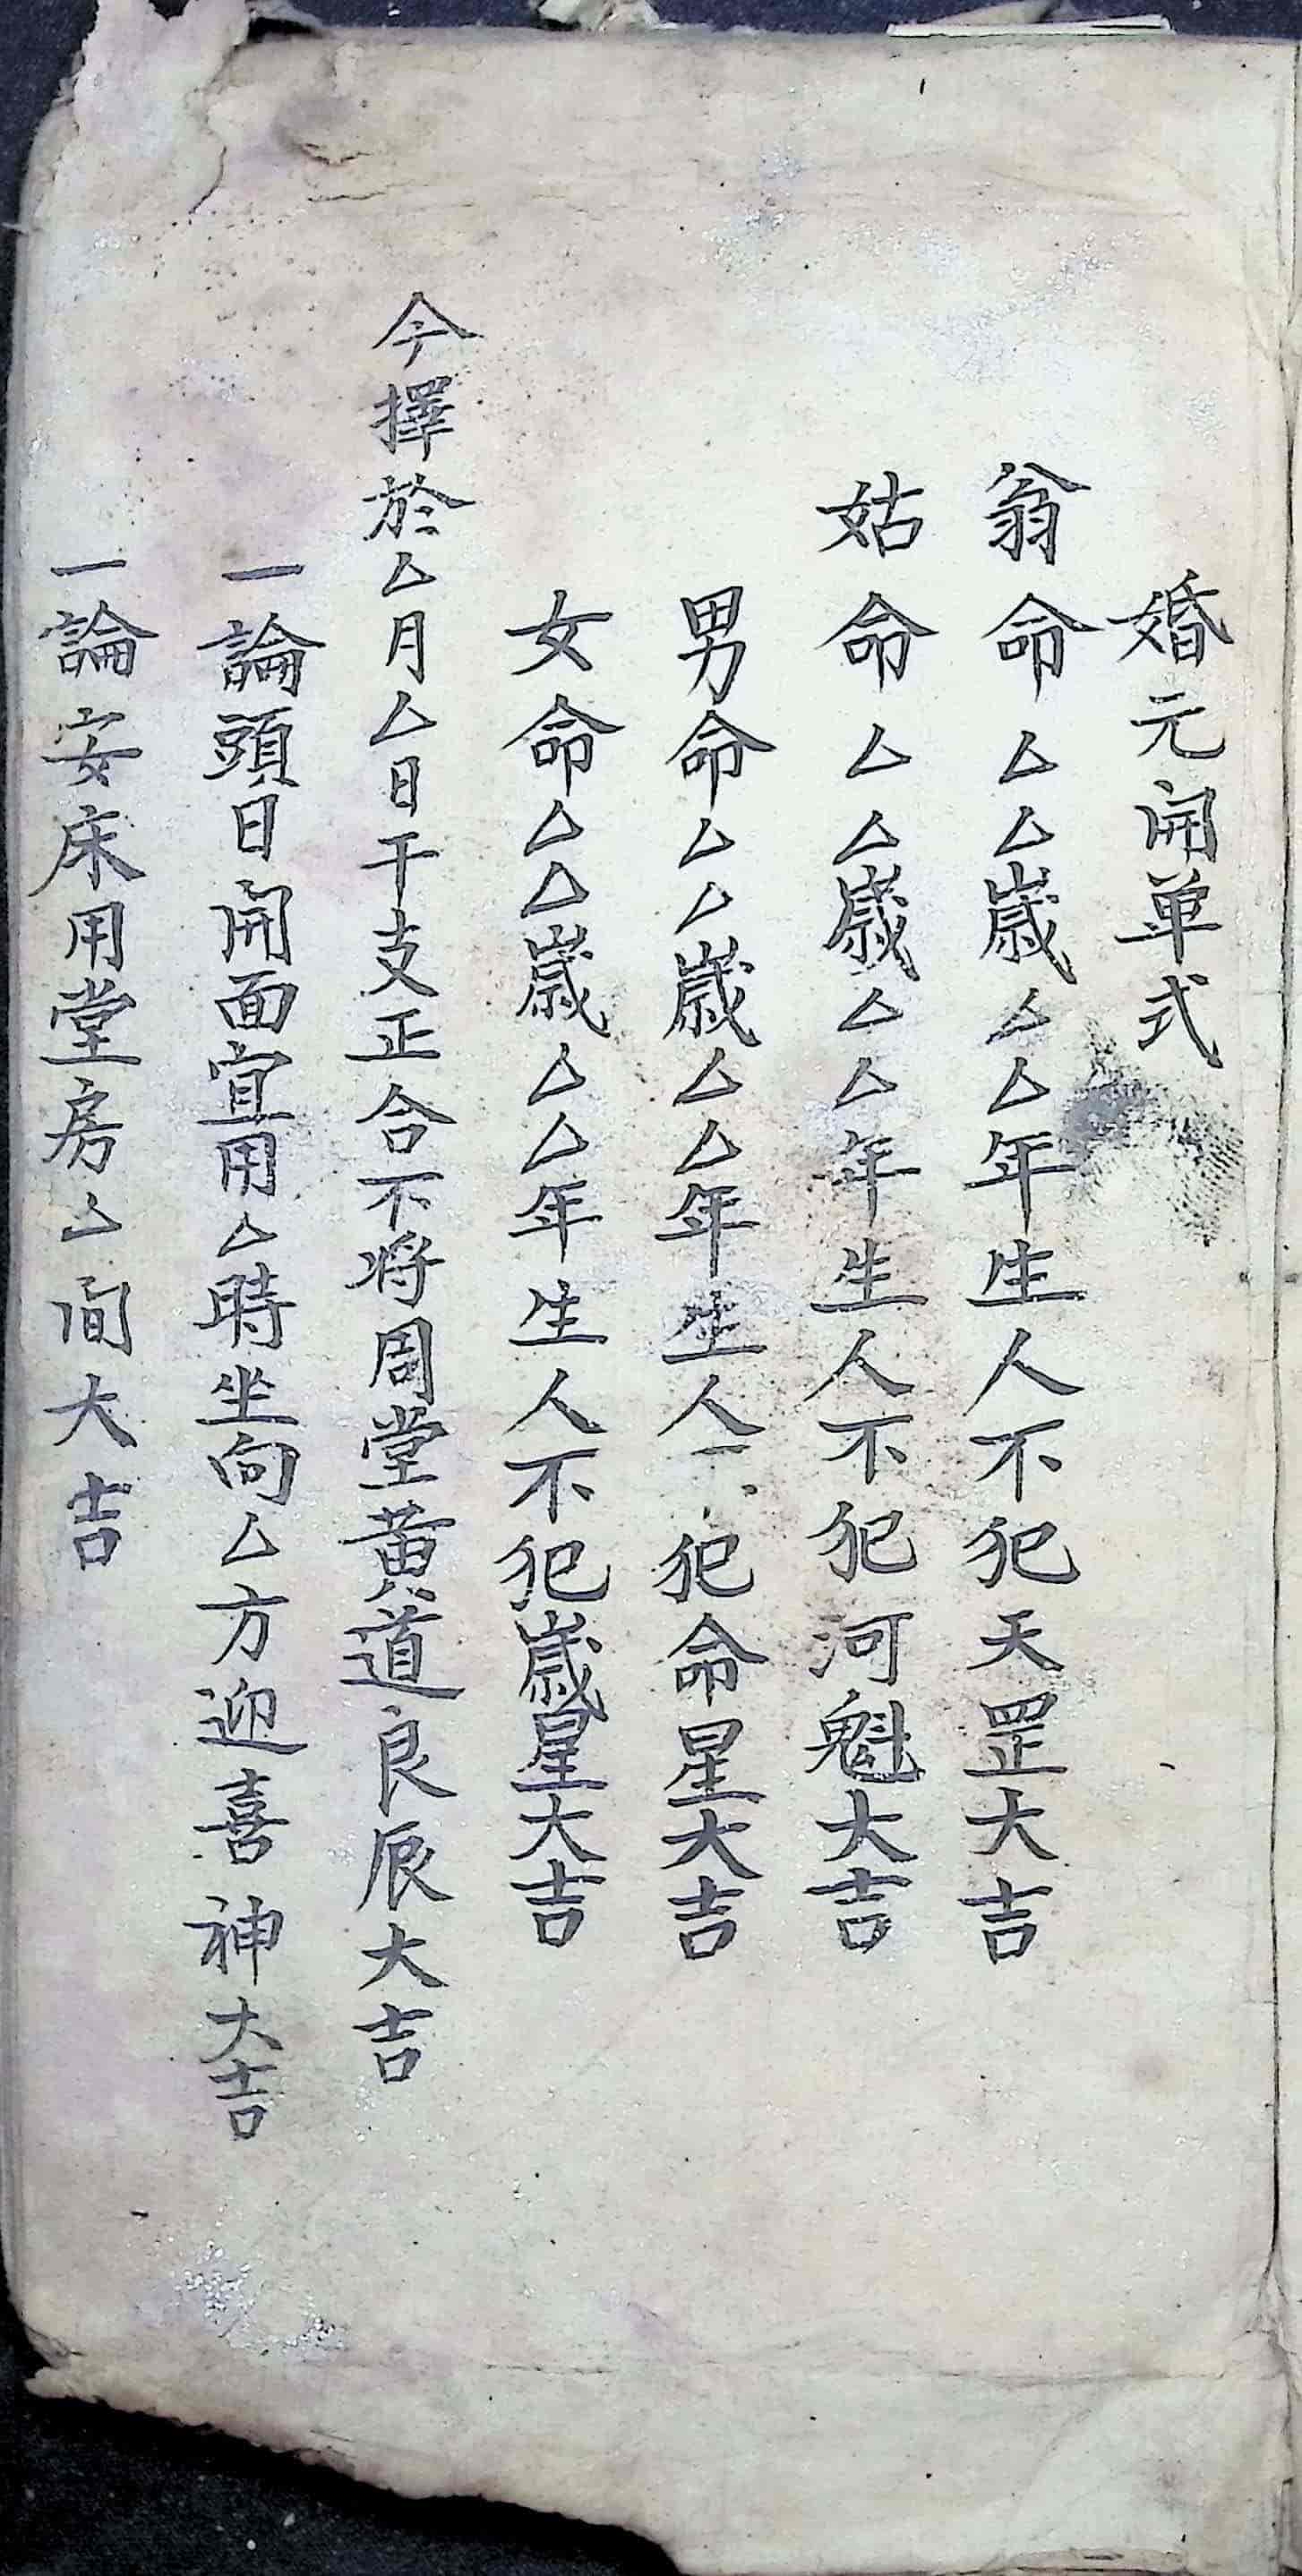 婚元開单式
翁命厶厶歳厶厶年生人不犯天罡大吉
姑命厶厶歳厶厶年生人不犯河魁大吉
男命厶厶歳厶厶年生人不犯命星大吉
女命厶厶歳厶厶年生人不犯歳星大吉
今擇於厶月厶日干支正合不将周堂黄道良辰大吉
一論頭日開面宜用厶時坐向厶方迎喜神大吉
一論安床用堂房厶間大吉